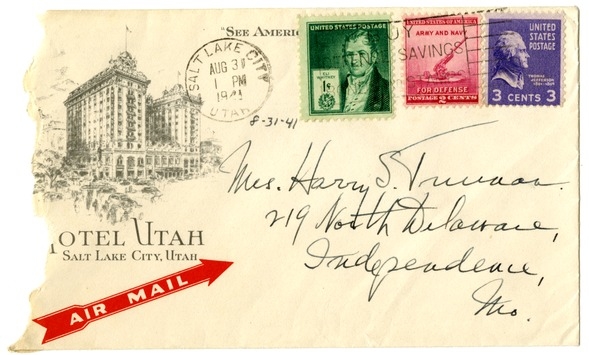 "SEE AMERIC
SALT LAKE CITY
AUG 31
1 PM
1941
UTAH
8-31-41
UNITED STATES POSTAGE
ELI WHITNEY
1¢
UNITED STATES OF AMERICA
ARMY AND NAVY
FOR DEFENSE
POSTAGE 2 CENTS
SAVINGS
UNITED
STATES
POSTAGE
THOMAS
JEFFERSON
3 CENTS 3
Mrs. Harry S. Truman.
219 North Delaware,
Independence,
Mo.
HOTEL UTAH
SALT LAKE CITY, UTAH
AIR MAIL